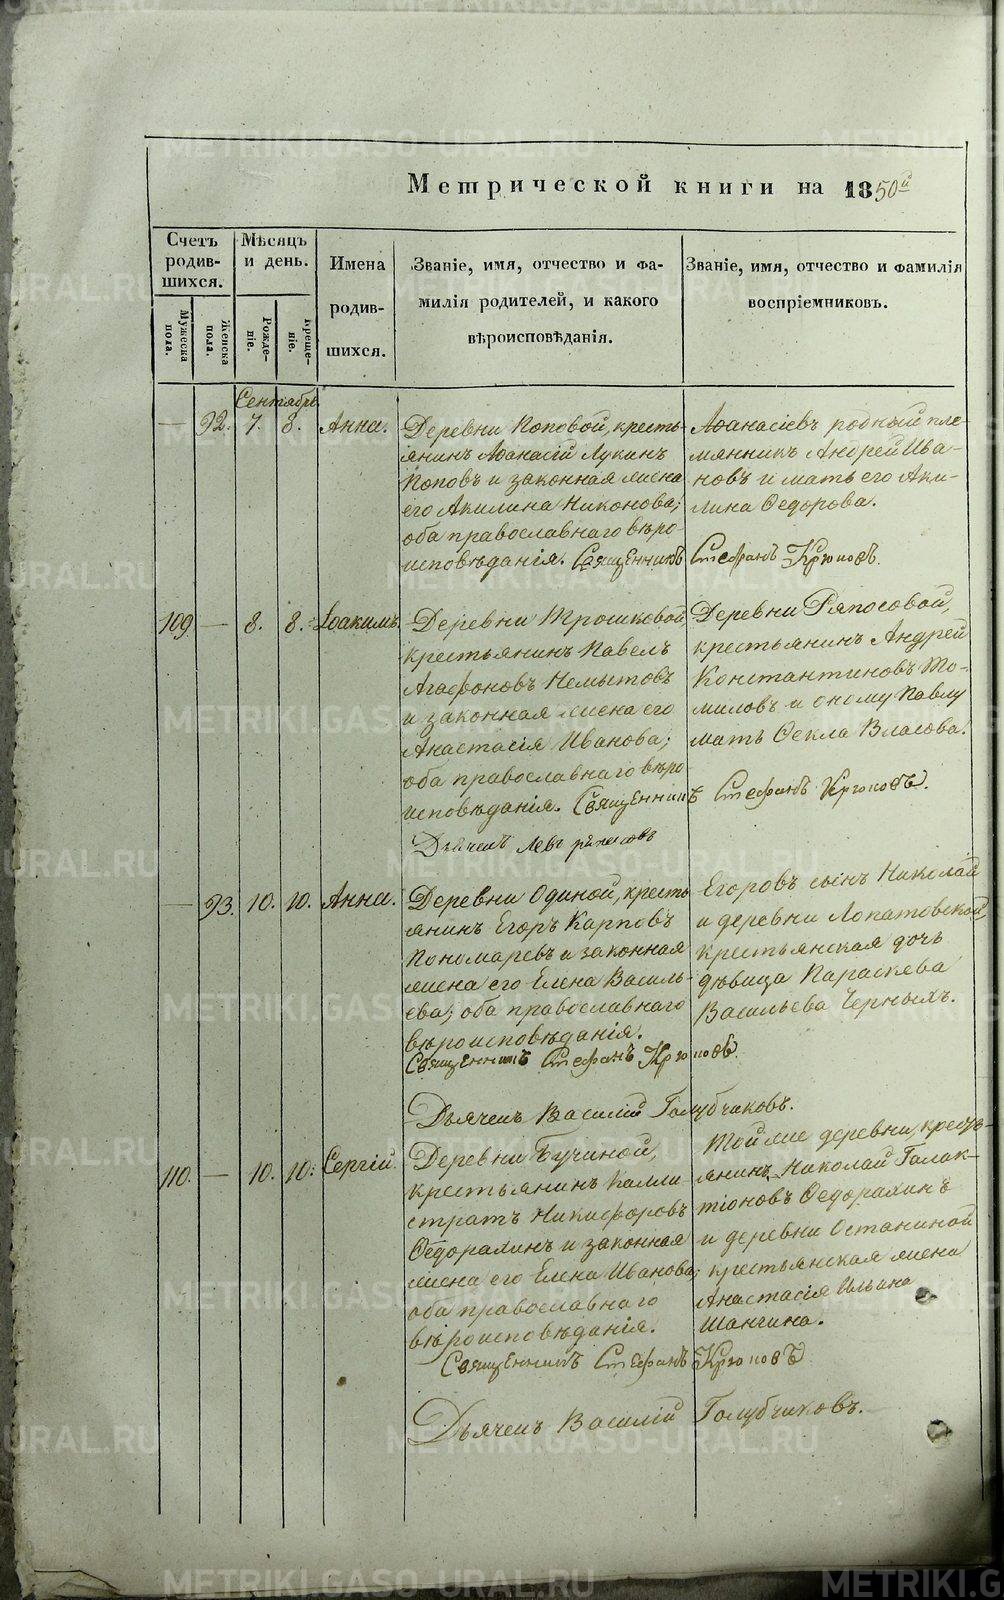 Метрической книги на 1850й
Счетъ родив-шихся.
Мѣсяцъ и день.
Имена родив-шихся.
Званіе, имя, отчество и фа-
милія родителей, и какого
вѣроисповѣданія.
Званіе, имя, отчество и фамилія
воспріемниковъ.
Мужеска пола.
Женска пола.
Рожде-ніе.
Креще-ніе.
Сентябрь.
— 92. 7. 8. Анна.
Деревни Поповой, кресть-
янинъ Аѳанасій Лукинъ
Поповъ и законная жена
его Акилина Никонова;
оба православнаго вѣро-
исповѣданія. Священникъ Стефанъ Крюковъ.
Аѳанасіевъ родный пле-
мянникъ Андрей Ива-
новъ и мать его Аки-
лина Ѳедорова.
109 — 8. 8. Іоакимъ.
Деревни Трошковой,
крестьянинъ Павелъ
Агафоновъ Немытовъ
и законная жена его
Анастасія Иванова;
оба православнаго вѣро-
исповѣданія. Священникъ Стефанъ Крюковъ.
Дьячекъ Левъ
Деревни Ряпосовой,
крестьянинъ Андрей
Константиновъ То-
миловъ и оному Павлу
мать Ѳекла Власова.
— 93. 10. 10. Анна.
Деревни Одиной, кресть
янинъ Егоръ Карповъ
Пономаревъ и законная
жена его Елена Василь-
ева; оба православнаго
вѣроисповѣданія.
Священникъ Стефанъ Крюковъ.
Дьячекъ Василій Голубчиковъ.
Егоровъ сынъ Николай
и деревни Лопатовской,
крестьянская дочь
дѣвица Параскева
Васильева Черныхъ.
110. — 10. 10. Сергій.
Деревни Бучиной,
крестьянинъ Калли
стратъ Никифоровъ
Ѳедорахинъ и законная
жена его Елена Иванова;
оба православнаго
вѣроисповѣданія.
Священникъ Стефанъ Крюковъ
Дьячекъ Василій Голубчиковъ.
Той же деревни, кресть-
янинъ Николай Галак-
тіоновъ Ѳедорахинъ
и деревни Останиной
крестьянская жена
Анастасія Ильина
Шангина.
METRIKI.GASO-URAL.RU